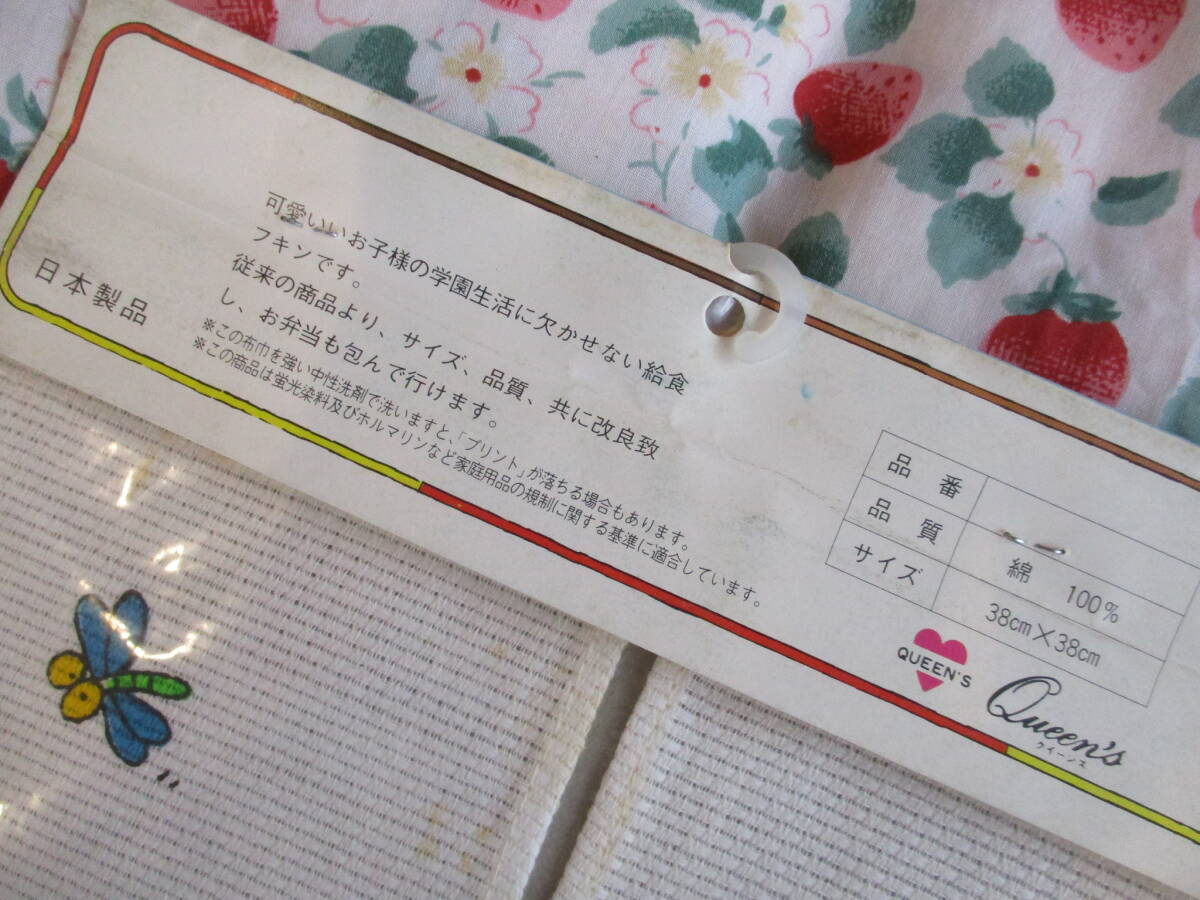 可愛いいお子様の学園生活に欠かせない給食
フキンです。
従来の商品より、サイズ、品質、共に改良致
し、お弁当も包んで行けます。
※この布巾を強い中性洗剤で洗いますと、「プリント」が落ちる場合もあります。
※この商品は蛍光染料及びホルマリンなど家庭用品の規制に関する基準に適合しています。
日本製品
品番
品質 綿 100%
サイズ 38cm×38cm
QUEEN'S
Queen's
クイーンズ